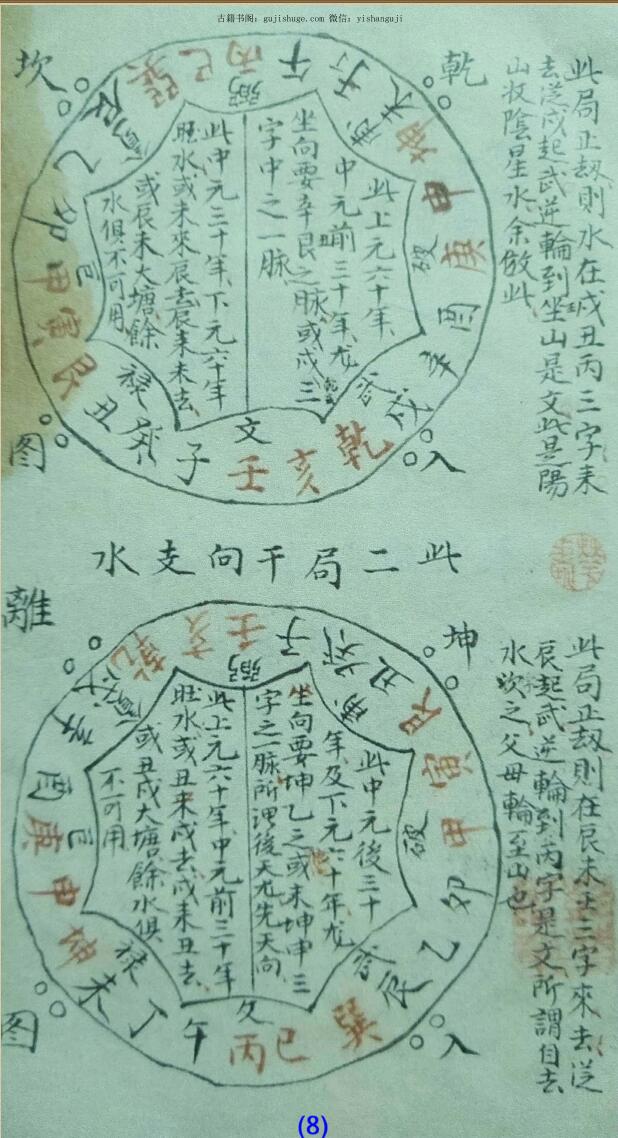 古籍书阁：gujishuge.com 微信：yishanguji
此局正劫則水在戌丑丙三字来
去從戌起武逆輪到坐山是文此是陽
山收陰星水余倣此
乾
入
坎
图
午
丁
未
坤
申
庚
酉
辛
戌
乾
亥
壬
子
癸
丑
艮
寅
甲
卯
乙
辰
巽
巳
丙
弼
破
文
祿
巨
此上元六十年
中元前三十年龙
坐向要辛艮之脉或戌三
字中之一脉
此中元三十年下元六十年
旺水或未來辰去辰来未去
或辰未大塘餘
水俱不可用
此二局干向支水
此局正劫則在辰未壬三字來去從
辰起武逆輪到丙字是文所謂自去
水坎之父母輪至山也
坤
入
離
图
子
癸
丑
艮
寅
甲
卯
乙
辰
巽
巳
丙
午
丁
未
坤
申
庚
酉
辛
戌
乾
亥
壬
弼
破
文
祿
巨
此中元後三十
年及下元六十年龙
坐向要坤乙之或未坤申三
字之一脉所谓後天龙先天向
此上元六十年中元前三十年
旺水或丑来戌去戌来丑去
或丑戌大塘餘水俱
不可用
(8)